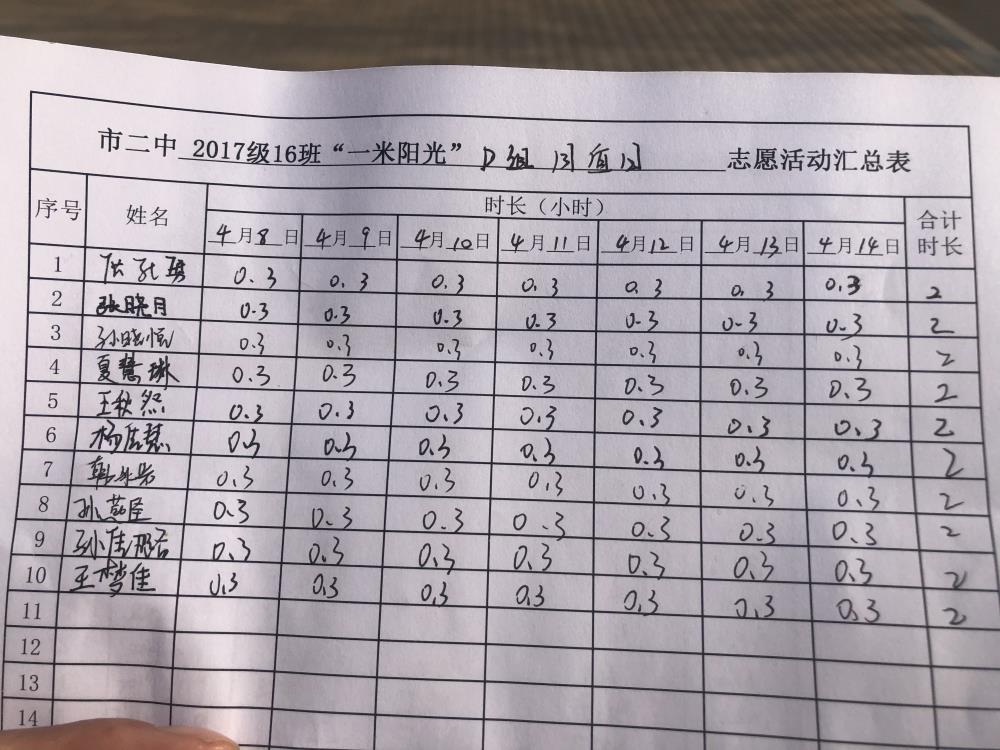 市二中 2017级16班“一米阳光” D组 周值日 志愿活动汇总表
序号 姓名 时长（小时） 合计时长
4月8日 4月9日 4月10日 4月11日 4月12日 4月13日 4月14日
1 0.3 0.3 0.3 0.3 0.3 0.3 0.3 2
2 张晓月 0.3 0.3 0.3 0.3 0.3 0.3 0.3 2
3 孙晓悦 0.3 0.3 0.3 0.3 0.3 0.3 0.3 2
4 夏慧琳 0.3 0.3 0.3 0.3 0.3 0.3 0.3 2
5 王秋然 0.3 0.3 0.3 0.3 0.3 0.3 0.3 2
6 0.3 0.3 0.3 0.3 0.3 0.3 0.3 2
7 0.3 0.3 0.3 0.3 0.3 0.3 0.3 2
8 0.3 0.3 0.3 0.3 0.3 0.3 0.3 2
9 0.3 0.3 0.3 0.3 0.3 0.3 0.3 2
10 王梦佳 0.3 0.3 0.3 0.3 0.3 0.3 0.3 2
11
12
13
14